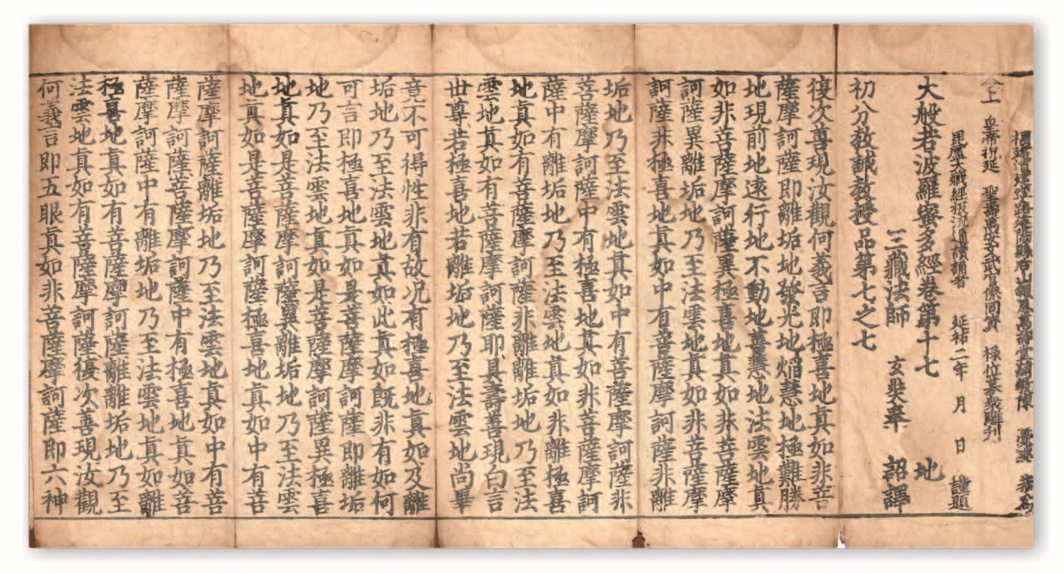 報恩萬壽堂嗣教陳 覺琳 恭為
今上皇帝祝延 聖壽萬安文武官僚同資 祿位募衆雕刊
毘盧大藏經板流通讀誦者 延祐二年 月 日 謹題
大般若波羅蜜多經卷第十七 地
三藏法師 玄奘奉 詔譯
初分教誡教授品第七之七
復次善現汝觀何義言即極喜地眞如非菩
薩摩訶薩即離垢地發光地焰慧地極難勝
地現前地遠行地不動地善慧地法雲地眞
如非菩薩摩訶薩異極喜地眞如非菩薩摩
訶薩異離垢地乃至法雲地眞如非菩薩摩
訶薩非極喜地眞如中有菩薩摩訶薩非離
垢地乃至法雲地眞如中有菩薩摩訶薩非
菩薩摩訶薩中有極喜地眞如非菩薩摩訶
薩中有離垢地乃至法雲地眞如非離極喜
地眞如有菩薩摩訶薩非離離垢地乃至法
雲地眞如有菩薩摩訶薩耶具壽善現白言
世尊若極喜地若離垢地乃至法雲地尚畢
竟不可得性非有故況有極喜地眞如及離
垢地乃至法雲地眞如此眞如既非有如何
可言即極喜地眞如是菩薩摩訶薩即離垢
地乃至法雲地眞如是菩薩摩訶薩異極喜
地眞如是菩薩摩訶薩異離垢地乃至法雲
地眞如是菩薩摩訶薩極喜地眞如中有菩
薩摩訶薩離垢地乃至法雲地眞如中有菩
薩摩訶薩菩薩摩訶薩中有極喜地眞如菩
薩摩訶薩中有離垢地乃至法雲地眞如離
極喜地眞如有菩薩摩訶薩離離垢地乃至
法雲地眞如有菩薩摩訶薩復次善現汝觀
何義言即五眼眞如非菩薩摩訶薩即六神